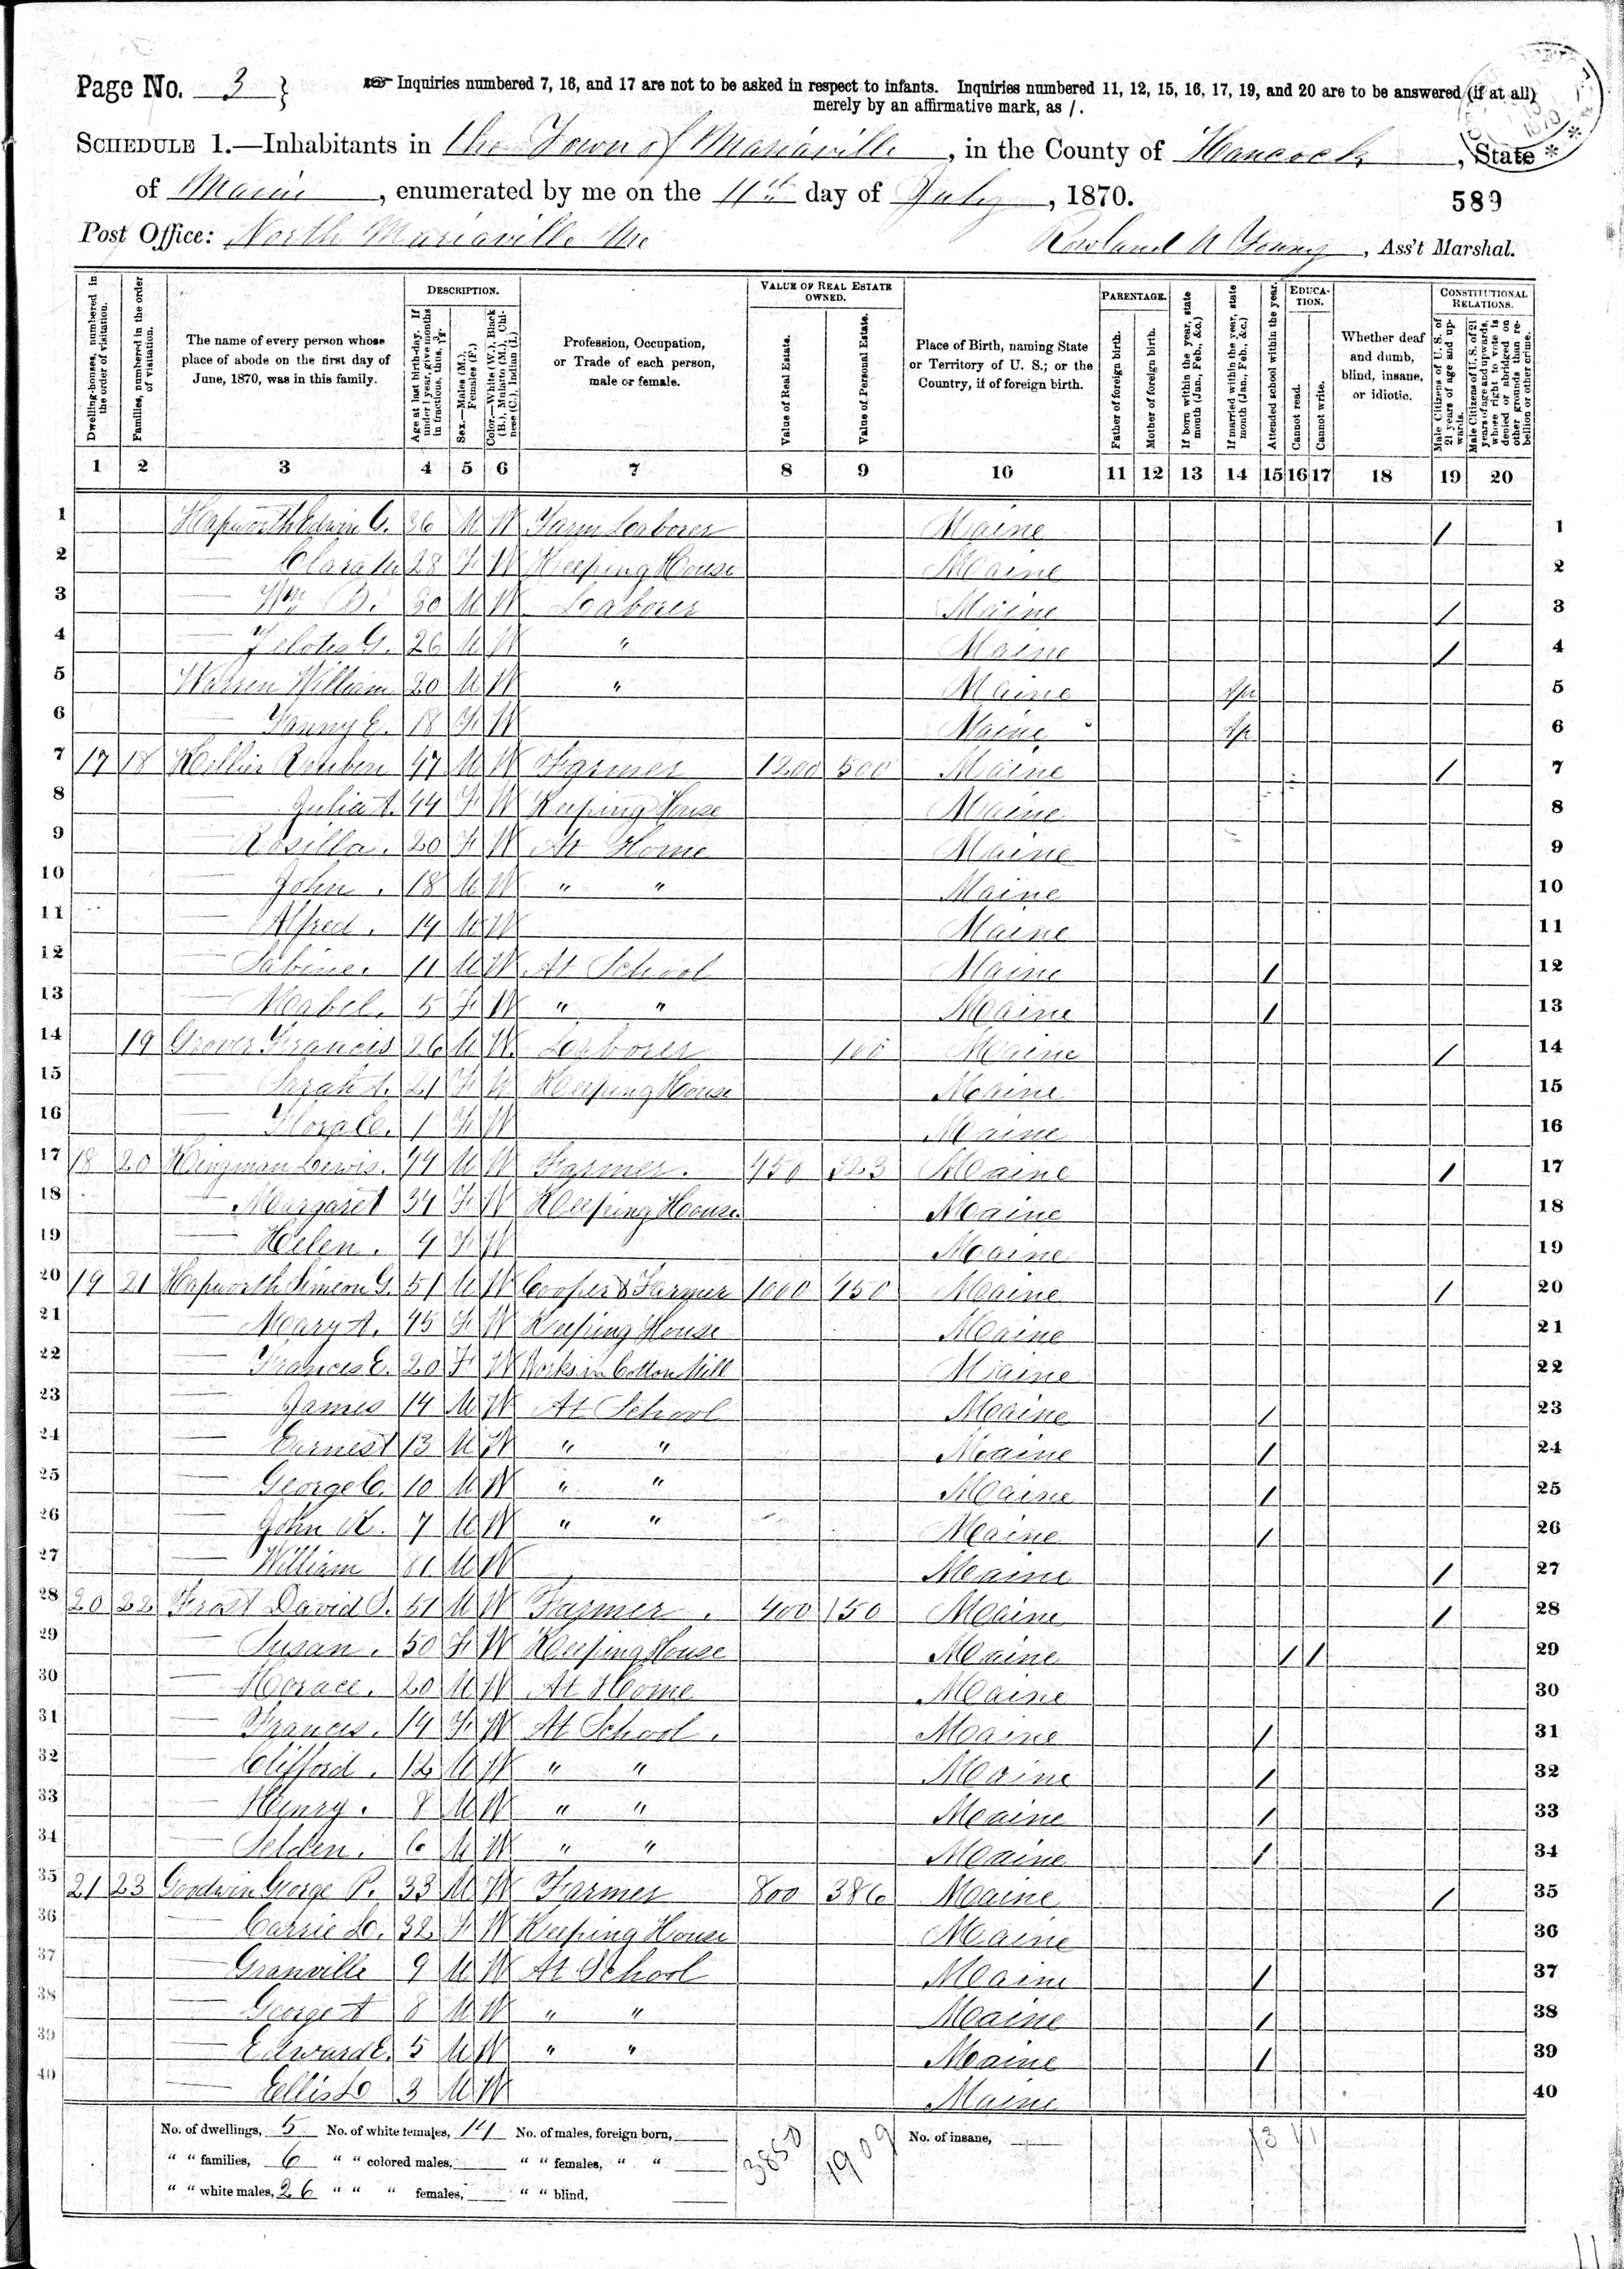 Page No. 3 } ☞ Inquiries numbered 7, 16, and 17 are not to be asked in respect to infants. Inquiries numbered 11, 12, 15, 16, 17, 19, and 20 are to be answered (if at all)
merely by an affirmative mark, as /.
SCHEDULE 1.—Inhabitants in the Town of Mariaville, in the County of Hancock, State
of Maine, enumerated by me on the 11th day of July, 1870.
589
Post Office: North Mariaville Me Rowland N Young, Ass't Marshal.
Dwelling-houses, numbered in the order of visitation.
Families, numbered in the order of visitation.
The name of every person whose place of abode on the first day of June, 1870, was in this family.
DESCRIPTION.
Age at last birth-day. If under 1 year, give months in fractions, thus, 3/12.
Sex.—Males (M.), Females (F.)
Color.—White (W.), Black (B.), Mulatto (M.), Chinese (C.), Indian (I.)
Profession, Occupation, or Trade of each person, male or female.
VALUE OF REAL ESTATE OWNED.
Value of Real Estate.
Value of Personal Estate.
Place of Birth, naming State or Territory of U. S.; or the Country, if of foreign birth.
PARENTAGE.
Father of foreign birth.
Mother of foreign birth.
If born within the year, state month (Jan., Feb., &c.)
If married within the year, state month (Jan., Feb., &c.)
Attended school within the year.
EDUCATION.
Cannot read.
Cannot write.
Whether deaf and dumb, blind, insane, or idiotic.
CONSTITUTIONAL RELATIONS.
Male Citizens of U. S. of 21 years of age and upwards.
Male Citizens of U. S. of 21 years of age and upwards, whose right to vote is denied or abridged on other grounds than rebellion or other crime.
1 2 3 4 5 6 7 8 9 10 11 12 13 14 15 16 17 18 19 20
1 Hapworth Edwin G. 26 M W Farm Laborer Maine / 1
2 — Clara M 28 F W Keeping House Maine 2
3 — Wm B. 30 M W Laborer Maine / 3
4 — Zelotes G. 26 M W " Maine / 4
5 Warren William 20 M W " Maine Apr 5
6 — Fanny E. 18 F W Maine Ap 6
7 17 18 Hillier Reuben 47 M W Farmer 1200 500 Maine / 7
8 — Julia A. 44 F W Keeping House Maine 8
9 — Rosilla. 20 F W At Home Maine 9
10 — John. 18 M W " " Maine 10
11 — Alfred. 14 M W Maine 11
12 — Sabine. 11 M W At School Maine / 12
13 — Mabel. 5 F W " " Maine / 13
14 19 Grover Francis 26 M W. Laborer 100 Maine / 14
15 — Sarah A. 21 F W Keeping House Maine 15
16 — Flora E. 1 F W Maine 16
17 18 20 Kingman Lewis. 44 M W Farmer. 450 323 Maine / 17
18 — Margaret 34 F W Keeping House. Maine 18
19 — Helen. 4 F W Maine 19
20 19 21 Hapworth Simeon G. 51 M W Cooper & Farmer 1000 450 Maine / 20
21 — Mary A. 45 F W Keeping House Maine 21
22 — Frances E. 20 F W Works in Cotton Mill Maine 22
23 — James 14 M W At School Maine / 23
24 — Earnest 13 M W " " Maine / 24
25 — George C. 10 M W " " Maine / 25
26 — John K. 7 M W " " Maine / 26
27 — William 81 M W Maine / 27
28 20 22 Frost David S. 51 M W Farmer. 400 150 Maine / 28
29 — Susan. 50 F W Keeping House Maine / / 29
30 — Horace. 20 M W At Home Maine 30
31 — Francis. 14 F W At School. Maine / 31
32 — Clifford. 12 M W " " Maine / 32
33 — Henry. 8 M W " " Maine / 33
34 — Selden. 6 M W " " Maine / 34
35 21 23 Goodwin George P. 33 M W Farmer 800 386 Maine / 35
36 — Carrie L. 32 F W Keeping House Maine 36
37 — Granville 9 M W At School Maine / 37
38 — George A 8 M W " " Maine / 38
39 — Edward E. 5 M W " " Maine / 39
40 — Ellis L 3 M W Maine 40
No. of dwellings, 5 No. of white females, 14 No. of males, foreign born, 3850 1909 No. of insane, 13 1 1
" " families, 6 " " colored males, " " females, " "
" " white males, 26 " " " females, " " blind,